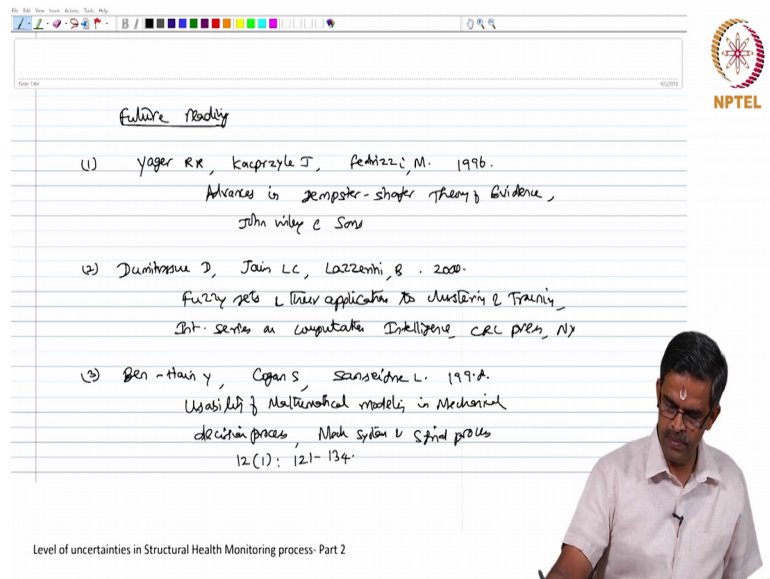 File Edit View Insert Actions Tools Help
B I
NPTEL
Note Title
Future reading
(1) Yager RR, Kacprzyle J, Fedrizzi, M. 1996.
Advances in Dempster-Shafer Theory of Evidence,
John Wiley & Sons
(2) Dumitrescu D, Jain LC, Lazzerini, B. 2000.
Fuzzy sets & Their application to clustering & Training
Int. series on computation Intelligence, CRC press, NY
(3) Ben-Haim Y, Cogan S, Sanseidne L. 1998.
Usability of Mathematical modeling in Mechanical
decision process, Mech system & signal process
12(1): 121-134.
Level of uncertainties in Structural Health Monitoring process- Part 2